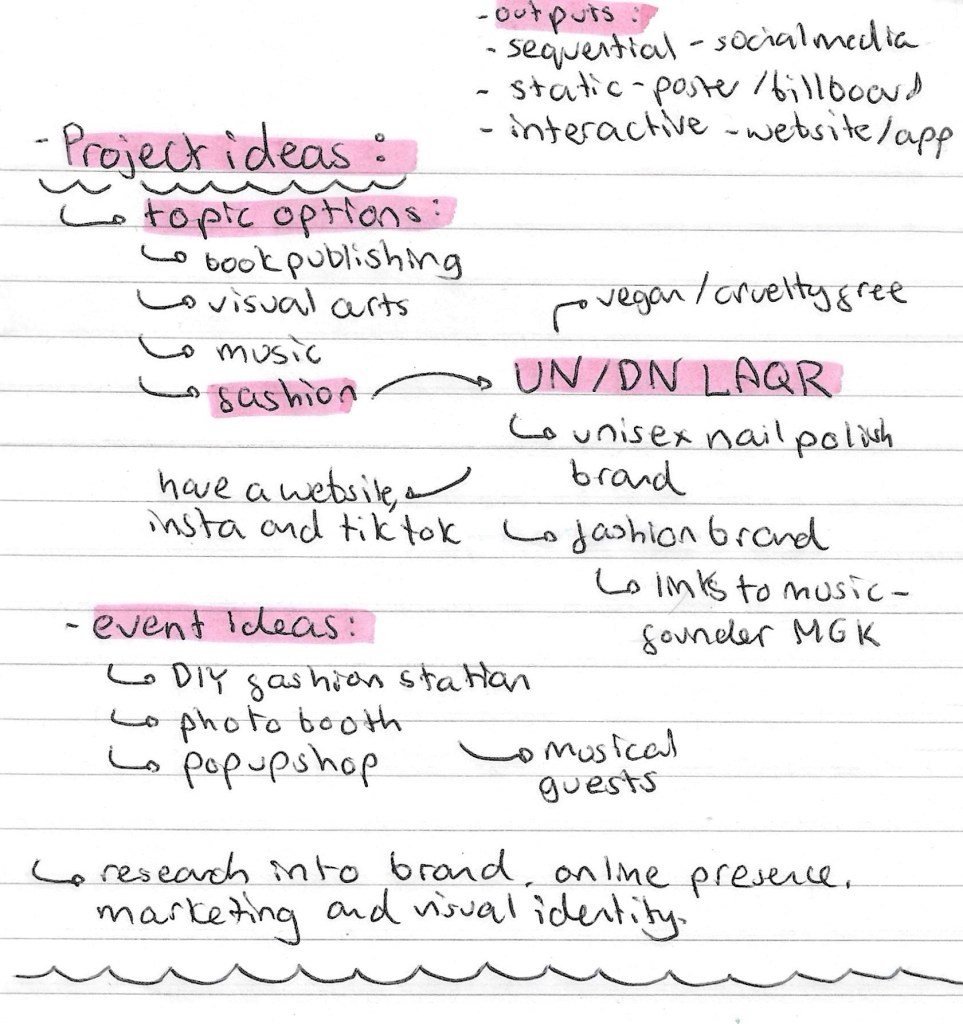 - outputs :
- sequential - social media
- static - poster / billboard
- interactive - website / app
- Project ideas :
topic options :
book publishing
visual arts
music
fashion
vegan / cruelty free
UN/DN LAQR
unisex nail polish
brand
have a website,
insta and tiktok
fashion brand
links to music -
founder MGK
- event ideas :
DIY fashion station
photo booth
popup shop
musical
guests
research into brand, online presence,
marketing and visual identity.